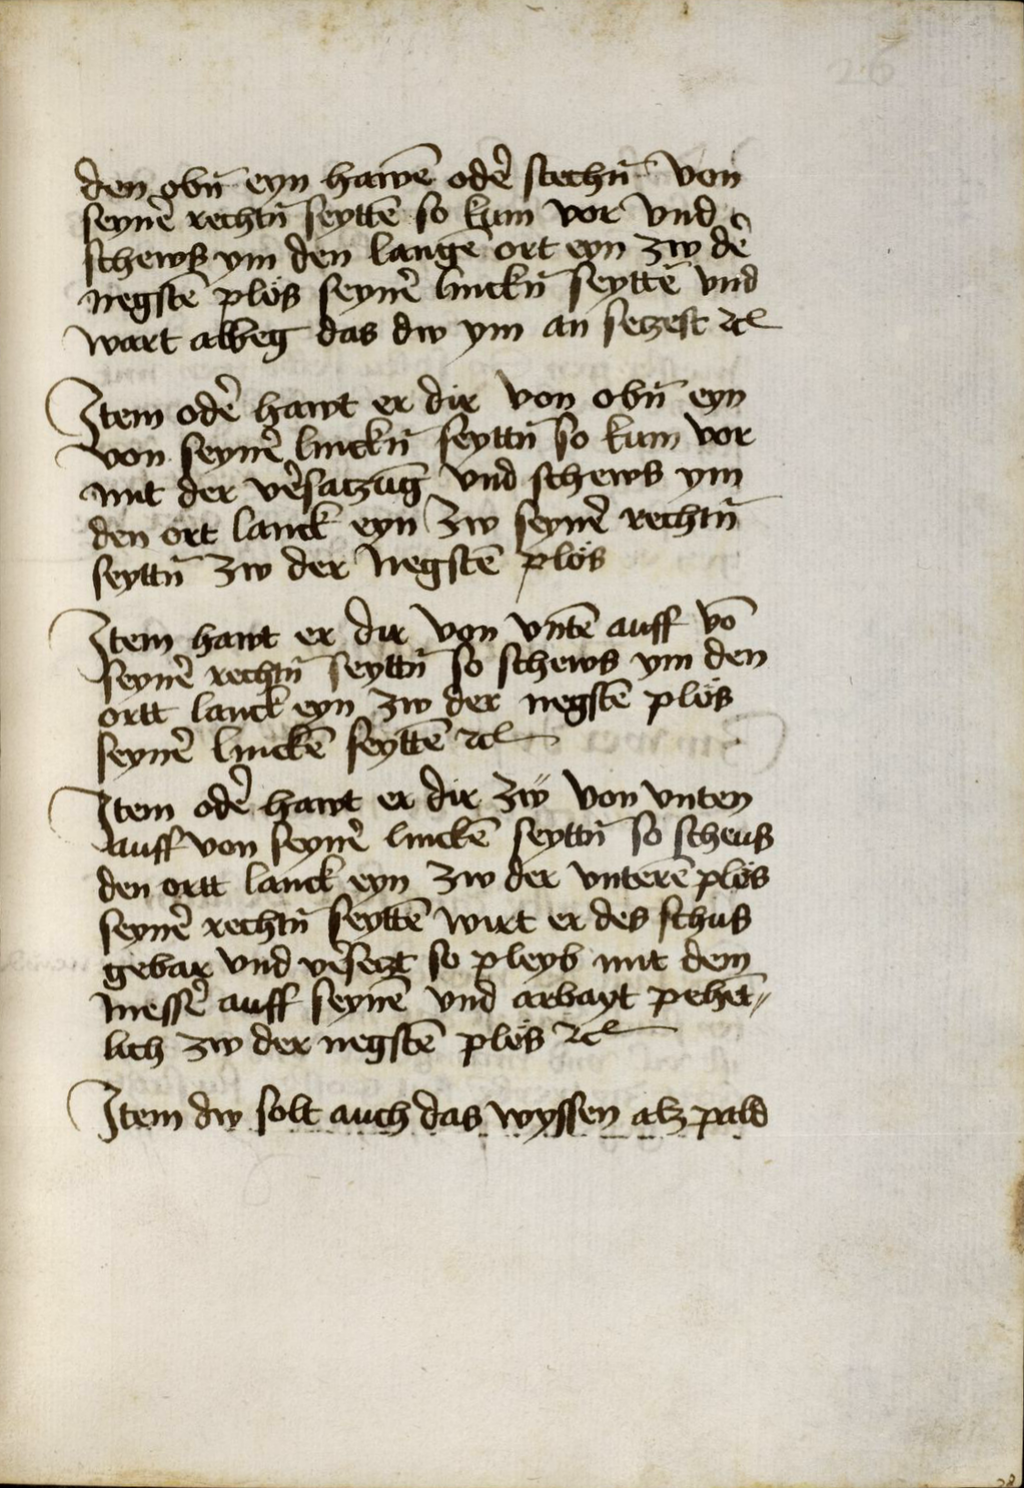 26
den obn̄ eyn hawē odẻ stechn̄ von
seynẻ rechtn̄ seyttē so kum vor vnd
schews ym den lange ort eyn zw dẻ
negstē plös seynẻ linckn̄ seyttē vnd
wart albeg das dw ym an setzest ⁊c
Item odẻ hawt er dir von obn̄ eyn
von seynẻ linckn̄ seyttn̄ so kum vor
mit der vẻsatzūg vnd schews ym
den ort lanck eyn zw seynẻ rechtn̄
seyttn̄ zw der negstē plös
Item hawt er dir von vntē auff vō
seynẻ rechtn̄ seyttn̄ so schews ym den
ortt lanck eyn zw der negstē plös
seynẻ linckē seyttē ⁊c
Item odẻ hawt er dir zẅ von vnten
auff von seynẻ linckē seyttn̄ so scheus
den ortt lanck eyn zw der vnterē plös
seynẻ rechtn̄ seyttē wirt er des schus
gebar vnd vẻsetzt so pleyb mit dem
messẻ auff seynē vnd arbayt pehēt〃
lich zw der negstē plös ⁊c
Item dw solt auch das wyssen alz pald